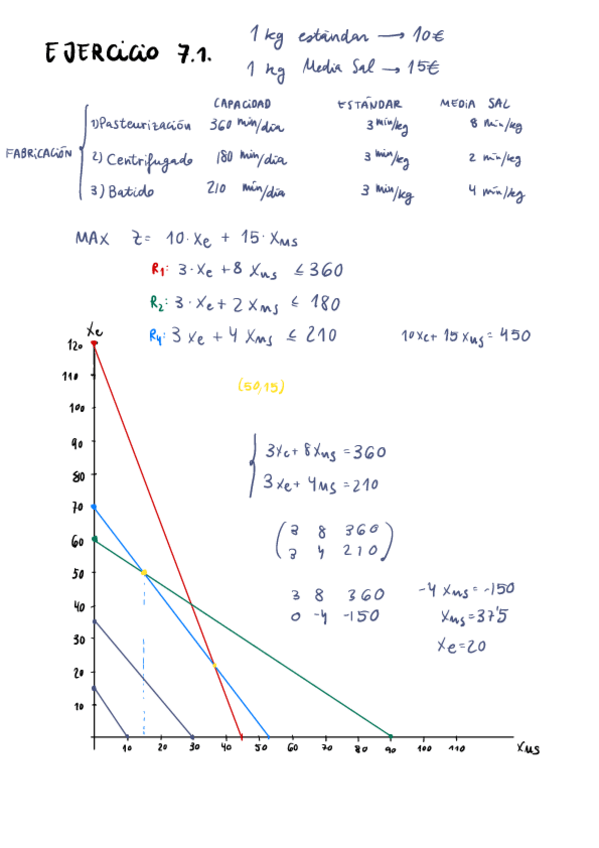 EJERCICIO 7.1.
1 kg estándar → 10€
1 kg Media Sal → 15€
CAPACIDAD ESTÁNDAR MEDIA SAL
FABRICACIÓN
1) Pasteurización 360 min/día 3 min/kg 8 min/kg
2) Centrifugado 180 min/día 3 min/kg 2 min/kg
3) Batido 210 min/día 3 min/kg 4 min/kg
MAX Z= 10·Xe + 15·XMS
R1: 3·Xe + 8 XMS ≤ 360
R2: 3·Xe + 2 XMS ≤ 180
R4: 3 Xe + 4 XMS ≤ 210
10Xe + 15 XMS = 450
(50,15)
3Xe + 8XMS = 360
3Xe + 4MS = 210
3 8 360
3 4 210
3 8 360
0 -4 -150
-4 XMS = -150
XMS = 37'5
Xe = 20
Xe
120
110
100
90
80
70
60
50
40
30
20
10
10 20 30 40 50 60 70 80 90 100 110 XMS